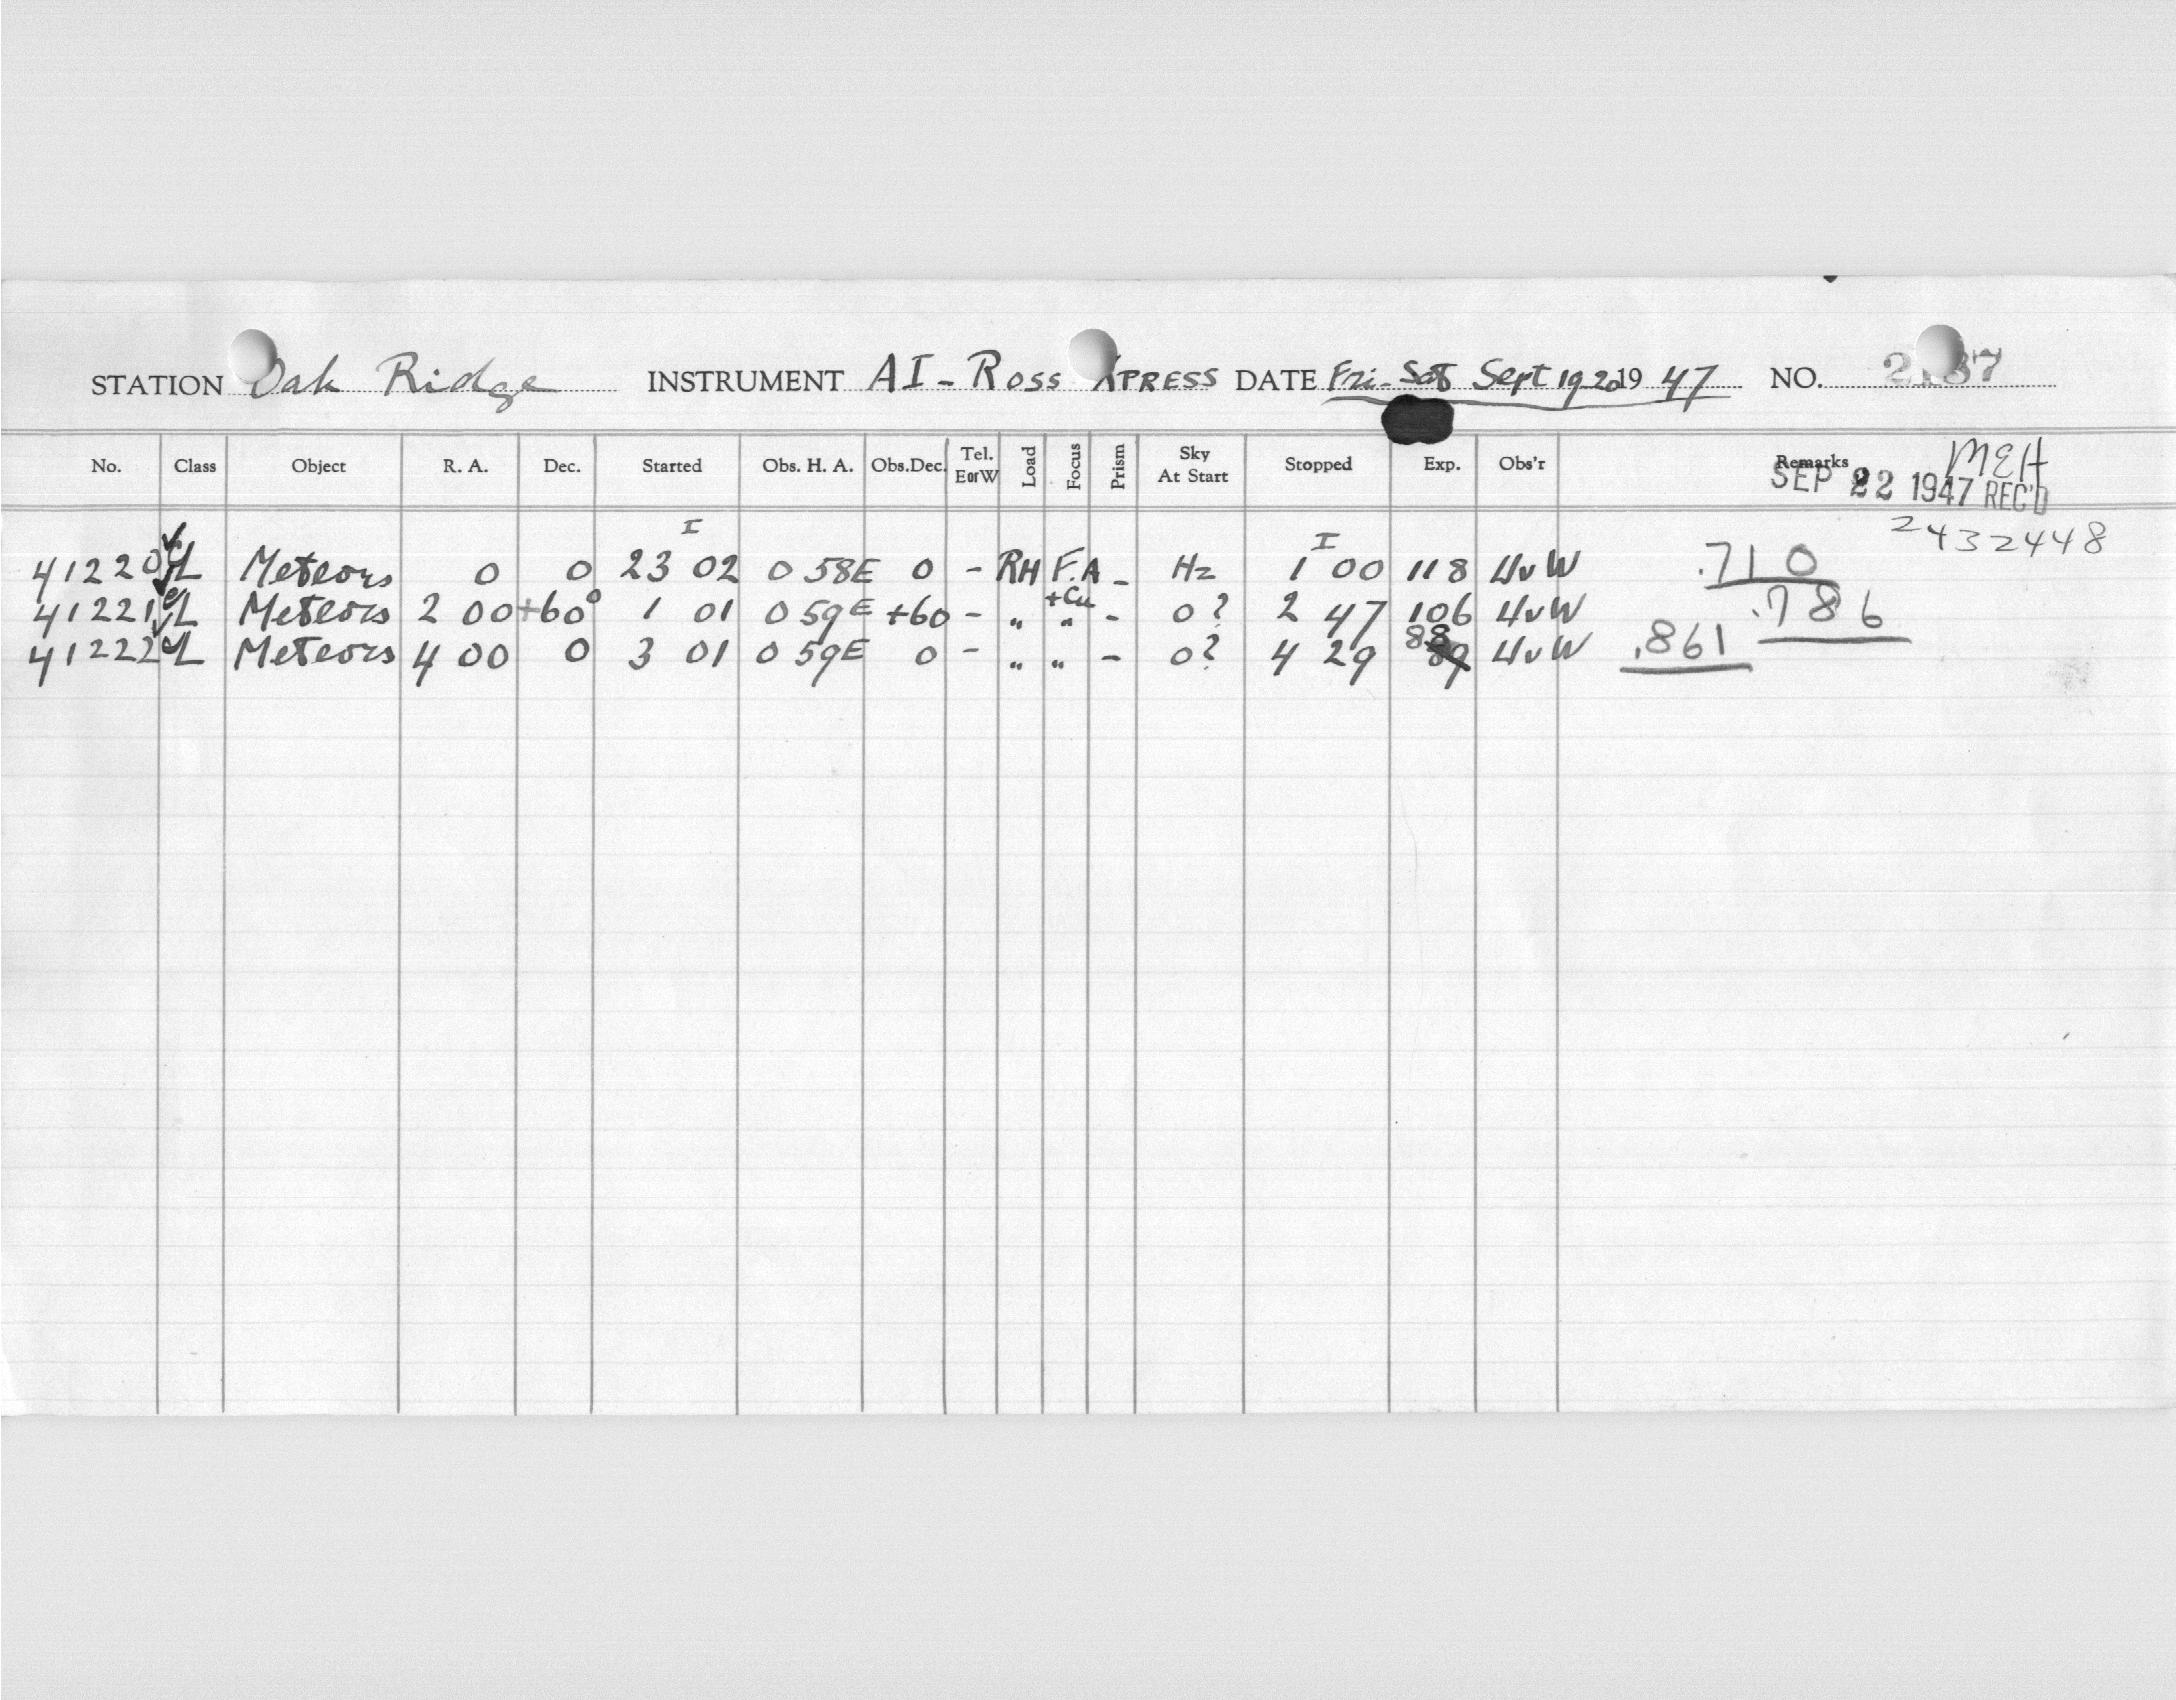 STATION Oak Ridge INSTRUMENT AI - Ross XPRESS DATE Fri-Sat Sept 19 20 19 47 NO.
No. Class Object R. A. Dec. Started Obs. H. A. Obs.Dec. Tel. E or W Load Focus Prism Sky At Start Stopped Exp. Obs'r Remarks
MEH
SEP 22 1947 REC'D
2432448
I I
41220 L Meteors 0 0 23 02 0 58E 0 - RH F.A - Hz 1 00 118 HvW .710
+Cu
41221 L Meteors 2 00 +60° 1 01 0 59E +60 - " " - 0? 2 47 106 HvW .786
41222 L Meteors 4 00 0 3 01 0 59E 0 - " " - 0? 4 29 88 89 HvW .861